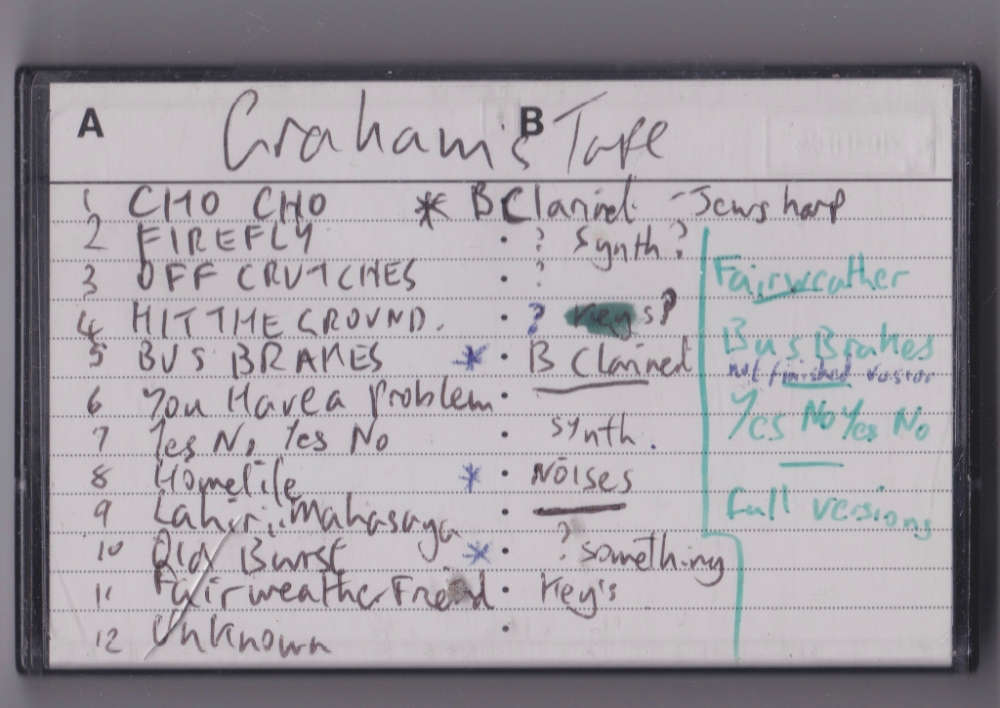 A Graham's B Tape
1 CHO CHO * B Clarinet - Jews harp
2 FIREFLY • ? synth?
3 OFF CRUTCHES • ?
4 HIT THE GROUND. • ? Keys?
5 BUS BRAKES * • B Clarined
6 You Have a problem •
7 Yes No Yes No • synth.
8 Homelife * • NOISES
9 Lahiri Mahasaya •
10 Old Burst * • ? something
11 Fairweather Freind • Key's
12 Unknown •
Fairweather
Bus Brakes
not finished
Yes No Yes No
full versions